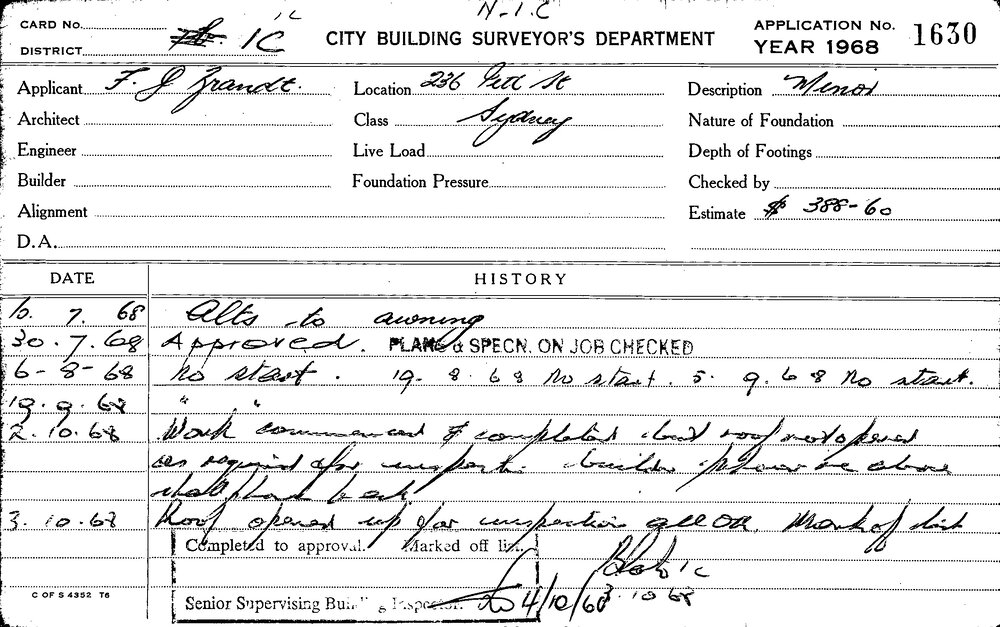 N-I.C
CARD No. IC
DISTRICT IC
CITY BUILDING SURVEYOR'S DEPARTMENT
APPLICATION No. 1630
YEAR 1968
Applicant F. J Zrandt. Location 236 Pitt St Description Minor
Architect Class Sydney Nature of Foundation
Engineer Live Load Depth of Footings
Builder Foundation Pressure Checked by
Alignment Estimate $ 388-60
D.A.
DATE HISTORY
7. 68 Alts to awning
30.7.68 Approved. PLANS & SPECN. ON JOB CHECKED
6-8-68 No start. 19.8.68 No start. 5.9.68 No start.
19.9.68 " "
2.10.68 Work commenced & completed but roof not opened
as required for inspect. builder above
shall back
3.10.68 Roof opened up for inspection all OK. Mark of list
Completed to approval. Marked off list.
IC
3.10.68
Senior Supervising Building Inspector. 4/10/68
C OF S 4352 T6